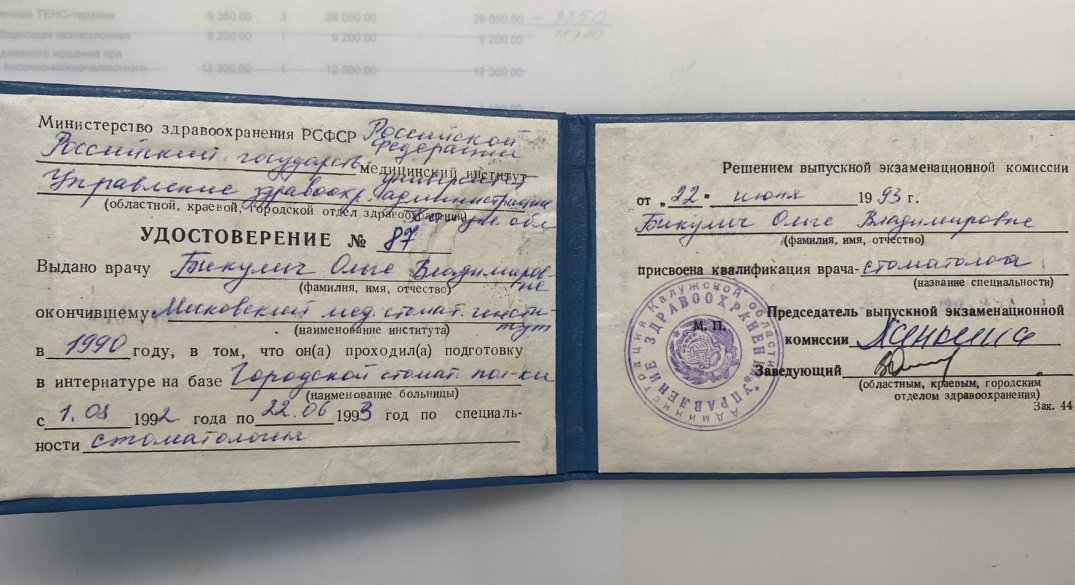 ечная ТЕНС-терапия 9 350.00 3 28 050.00 26 050.00 - 9350
бщающая окклюзионная 9 200.00 1 9 200.00 9 200.00
дневного ношения при
височно-нижнечелюстного 12 300.00 1 12 300.00 12 300.00
Министерство здравоохранения РСФСР Российской
Федерации
Российский государств. медицинский институт
университет
Управление здравоохр. администрации
(областной, краевой, городской отдел здравоохранения)
УДОСТОВЕРЕНИЕ № 87
Выдано врачу Бикулич Ольге Владимировне
(фамилия, имя, отчество)
окончившему Московский мед. стомат. институт
(наименование института)
в 1990 году, в том, что он(а) проходил(а) подготовку
в интернатуре на базе Городской стомат. пол-ки
(наименование больницы)
с 1.03 1992 года по 22.06 1993 год по специаль-
ности стоматология
Решением выпускной экзаменационной комиссии
от „22" июня 1993 г.
Бикулич Ольге Владимировне
(фамилия, имя, отчество)
присвоена квалификация врача-стоматолога
(название специальности)
Председатель выпускной экзаменационной
М. П.
комиссии
Заведующий
(областным, краевым, городским
отделом здравоохранения)
Зак. 44
Администрация Калужской области
УПРАВЛЕНИЕ ЗДРАВООХРАНЕНИЯ